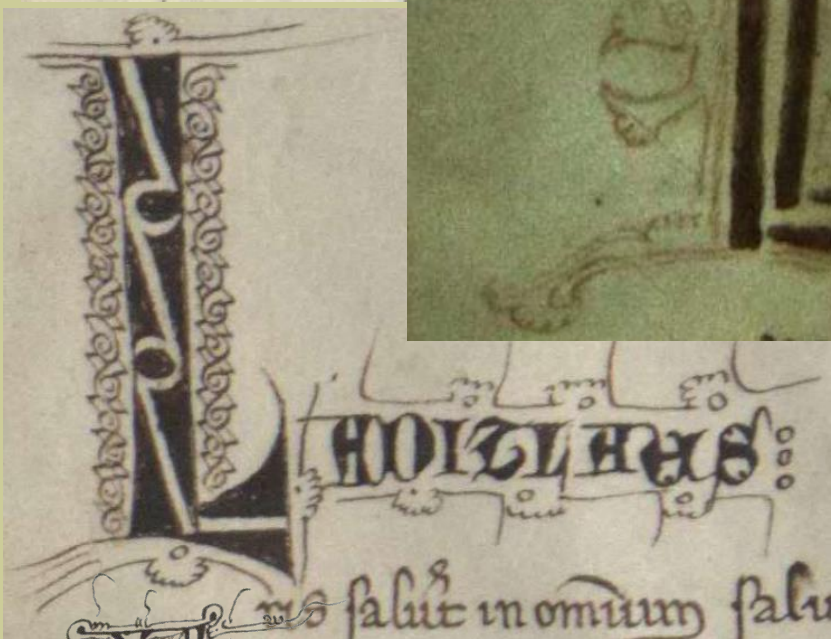 LADIZLAUS:
salut̃ in om̄ium salu